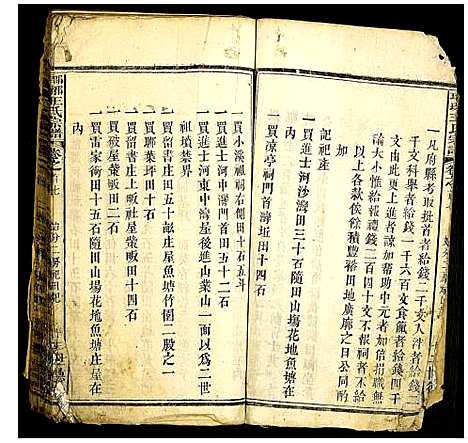 一凡府縣考取批首者給錢二千文入泮者給錢四
千文科舉者給錢一千六百文食廩者給錢四千
文由此更上進者諒加帮助中元者加倍捐職無
論大小惟給報禮錢二百四十文不報祠者不
以上各款俟餘積豐裕田地廣廓之日公同酌
加
記祀産
一買進士河沙灣田三十石隨田山塲花地魚塘在
内
一買涼亭祠門首灣坵田十四石
一買小溪祖祠右側田十石五斗
一買進士河中灣門首田五十二石
一買進士河東中灣屋後進山業山一面以爲二世
祖墳禁界
一買留書庄上庄田八十石庄屋魚塘竹園二股之一
一買留書庄上畈社屋
一買聯葉坪田十石
一買破屋塋畈田二石
一買雷家衖田十五石隨田山塲花地魚塘庄屋在
内